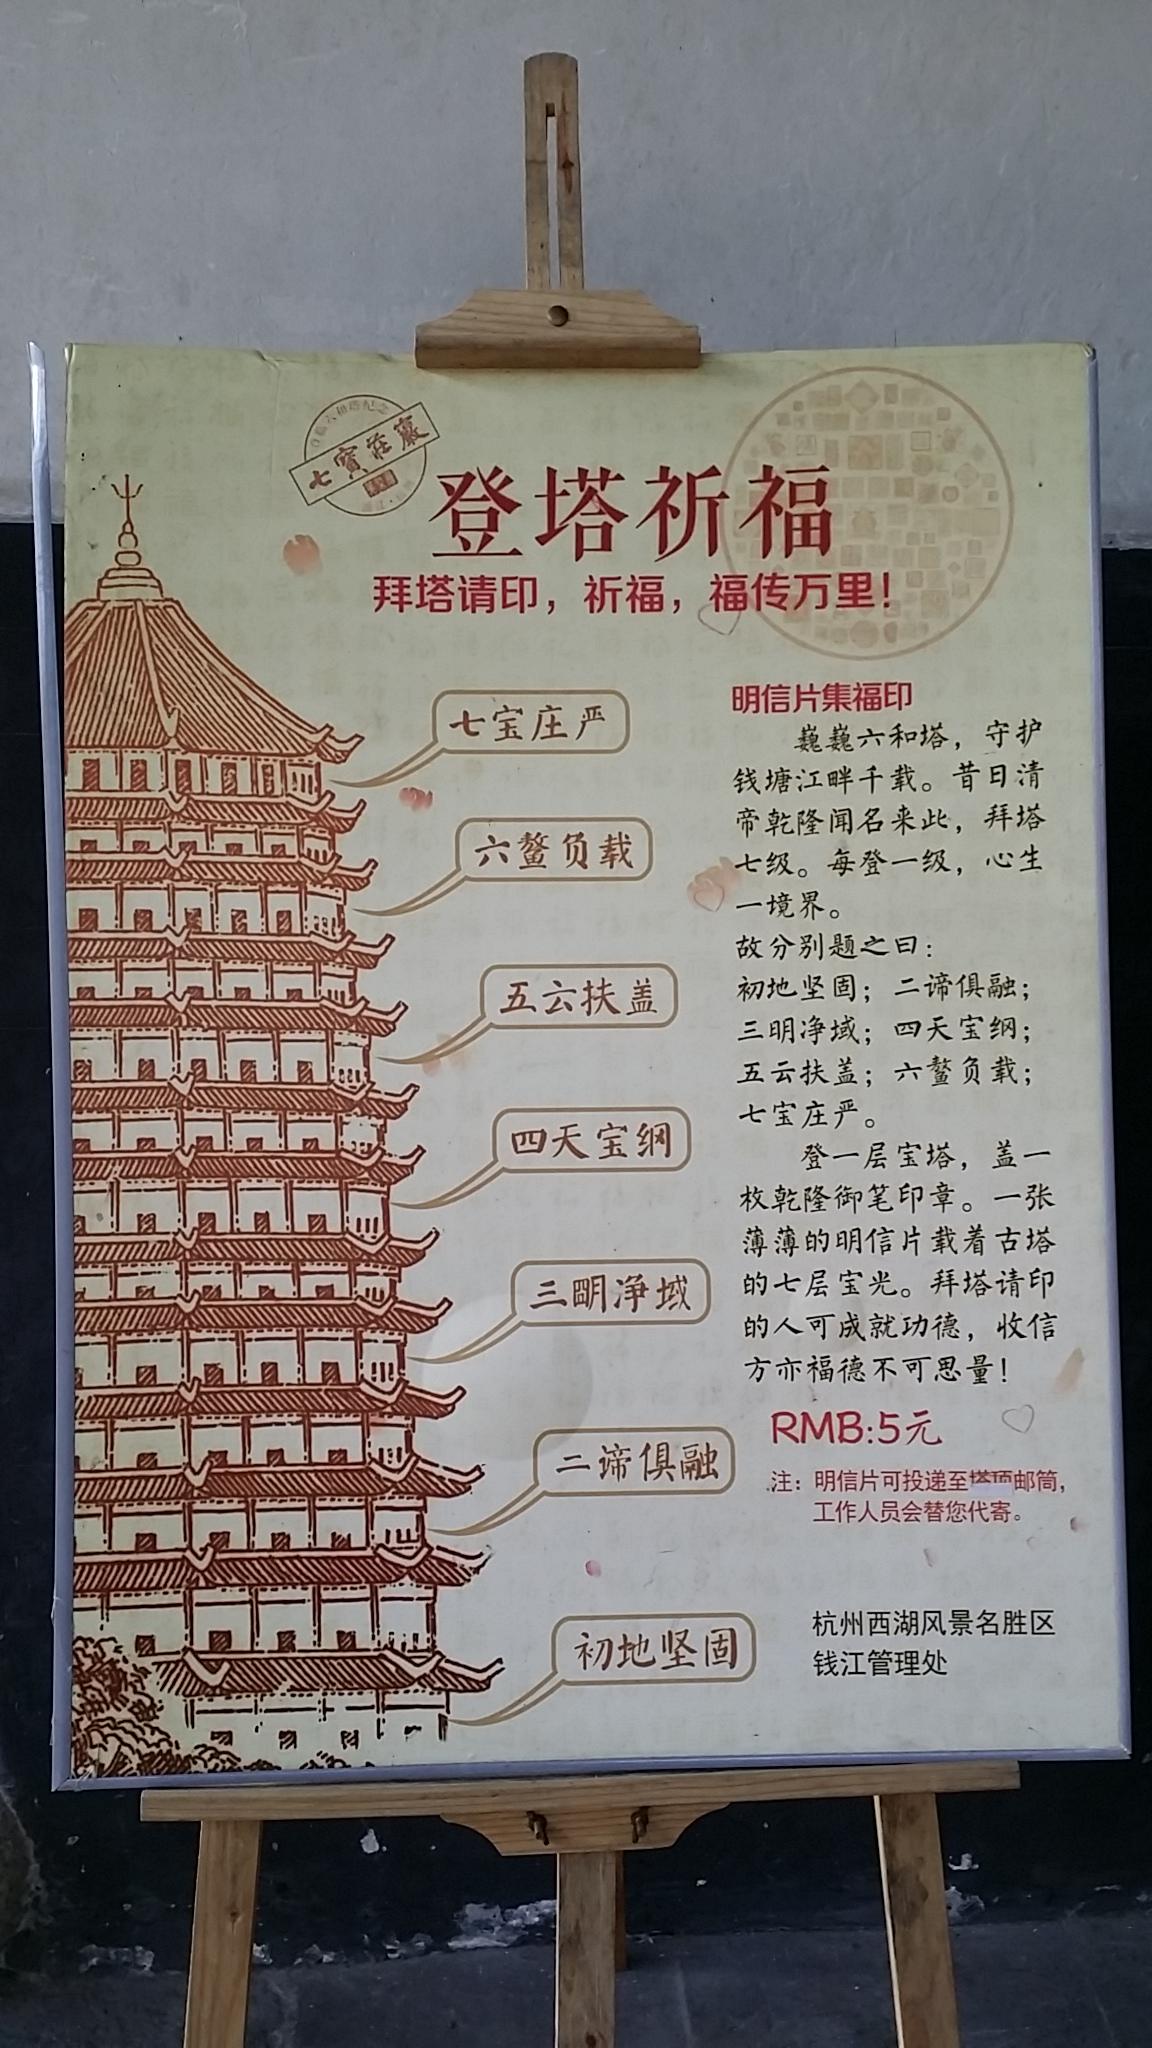 七寳莊嚴
登塔祈福
拜塔请印，祈福，福传万里！
七宝庄严
六鳌负载
五云扶盖
四天宝纲
三明净域
二谛俱融
初地坚固
明信片集福印
巍巍六和塔，守护
钱塘江畔千载。昔日清
帝乾隆闻名来此，拜塔
七级。每登一级，心生
一境界。
故分别题之曰：
初地坚固；二谛俱融；
三明净域；四天宝纲；
五云扶盖；六鳌负载；
七宝庄严。
登一层宝塔，盖一
枚乾隆御笔印章。一张
薄薄的明信片载着古塔
的七层宝光。拜塔请印
的人可成就功德，收信
方亦福德不可思量！
RMB:5元
注：明信片可投递至塔顶邮筒，
工作人员会替您代寄。
杭州西湖风景名胜区
钱江管理处